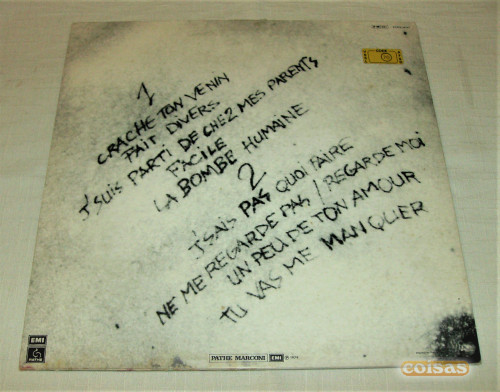 1
CRACHE TON VENIN
FAIT DIVERS
J'SUIS PARTI DE CHEZ MES PARENTS
FACILE
LA BOMBE HUMAINE
2
J'SAIS PAS QUOI FAIRE
NE ME REGARDE PAS / REGARDE MOI
UN PEU DE TON AMOUR
TU VAS ME MANQUER
EMI
PATHE
PATHE MARCONI EMI
coisas